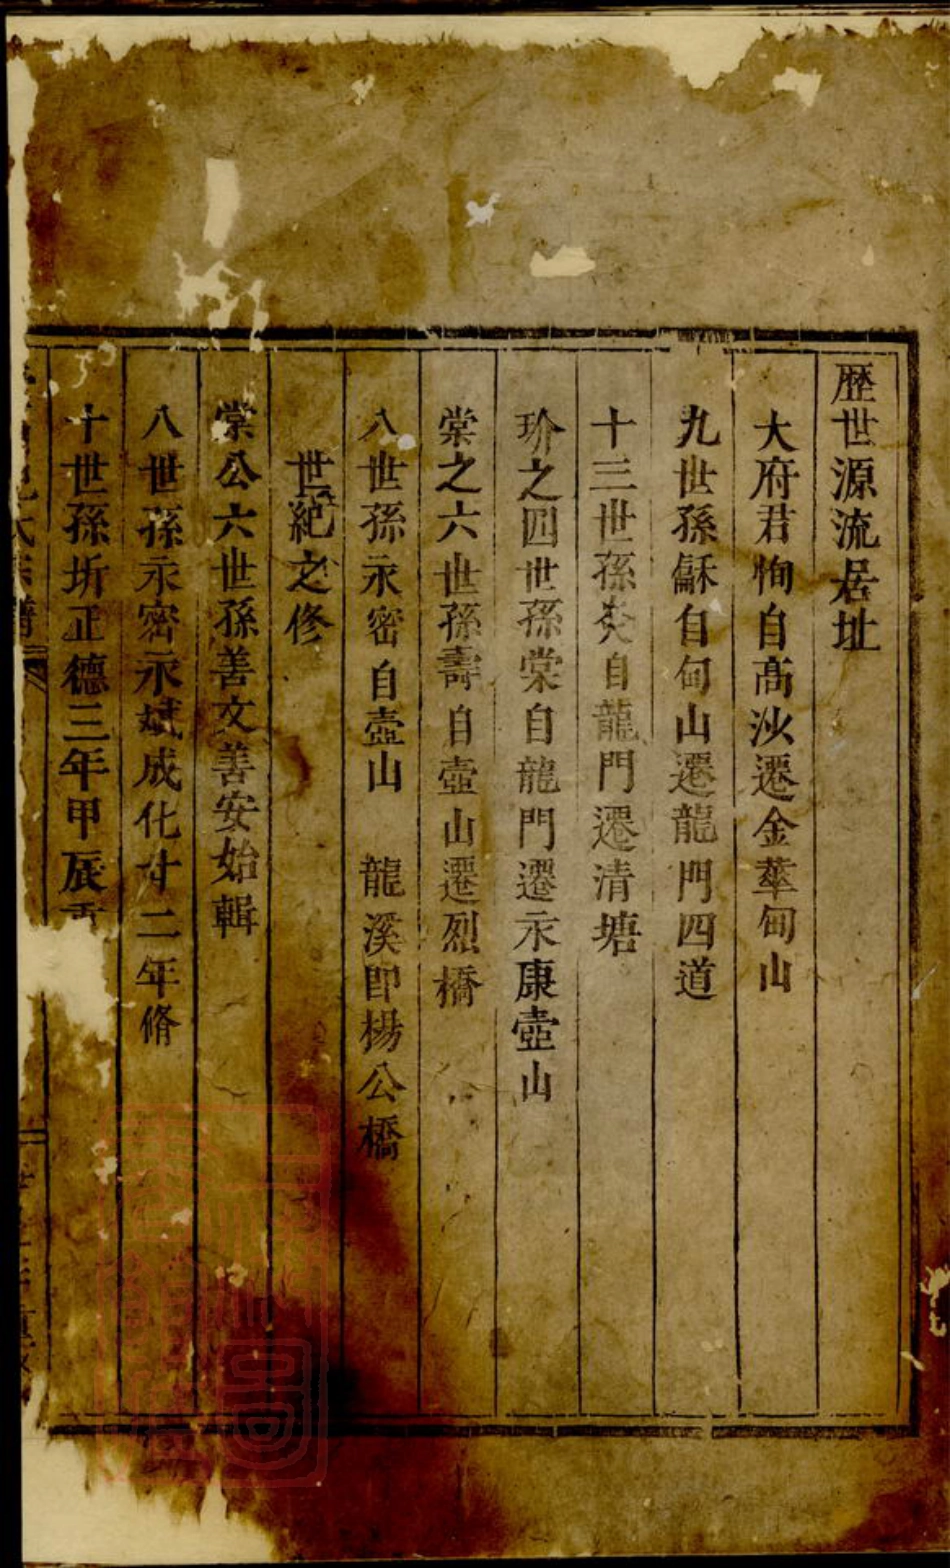 歴世源流居址
大府君恂自髙沙遷金華甸山
九世孫龢自甸山遷龍門四道
十三世孫炎自龍門遷清塘
玠之四世孫棠自龍門遷永康壺山
棠之六世孫壽自壺山遷烈橋
八世孫永密自壺山 龍溪即楊公橋
世紀之修
棠公六世孫善文善安始輯
八世孫永密永斌成化廿二年脩
十世孫圻正德三年甲辰重
氏宗譜